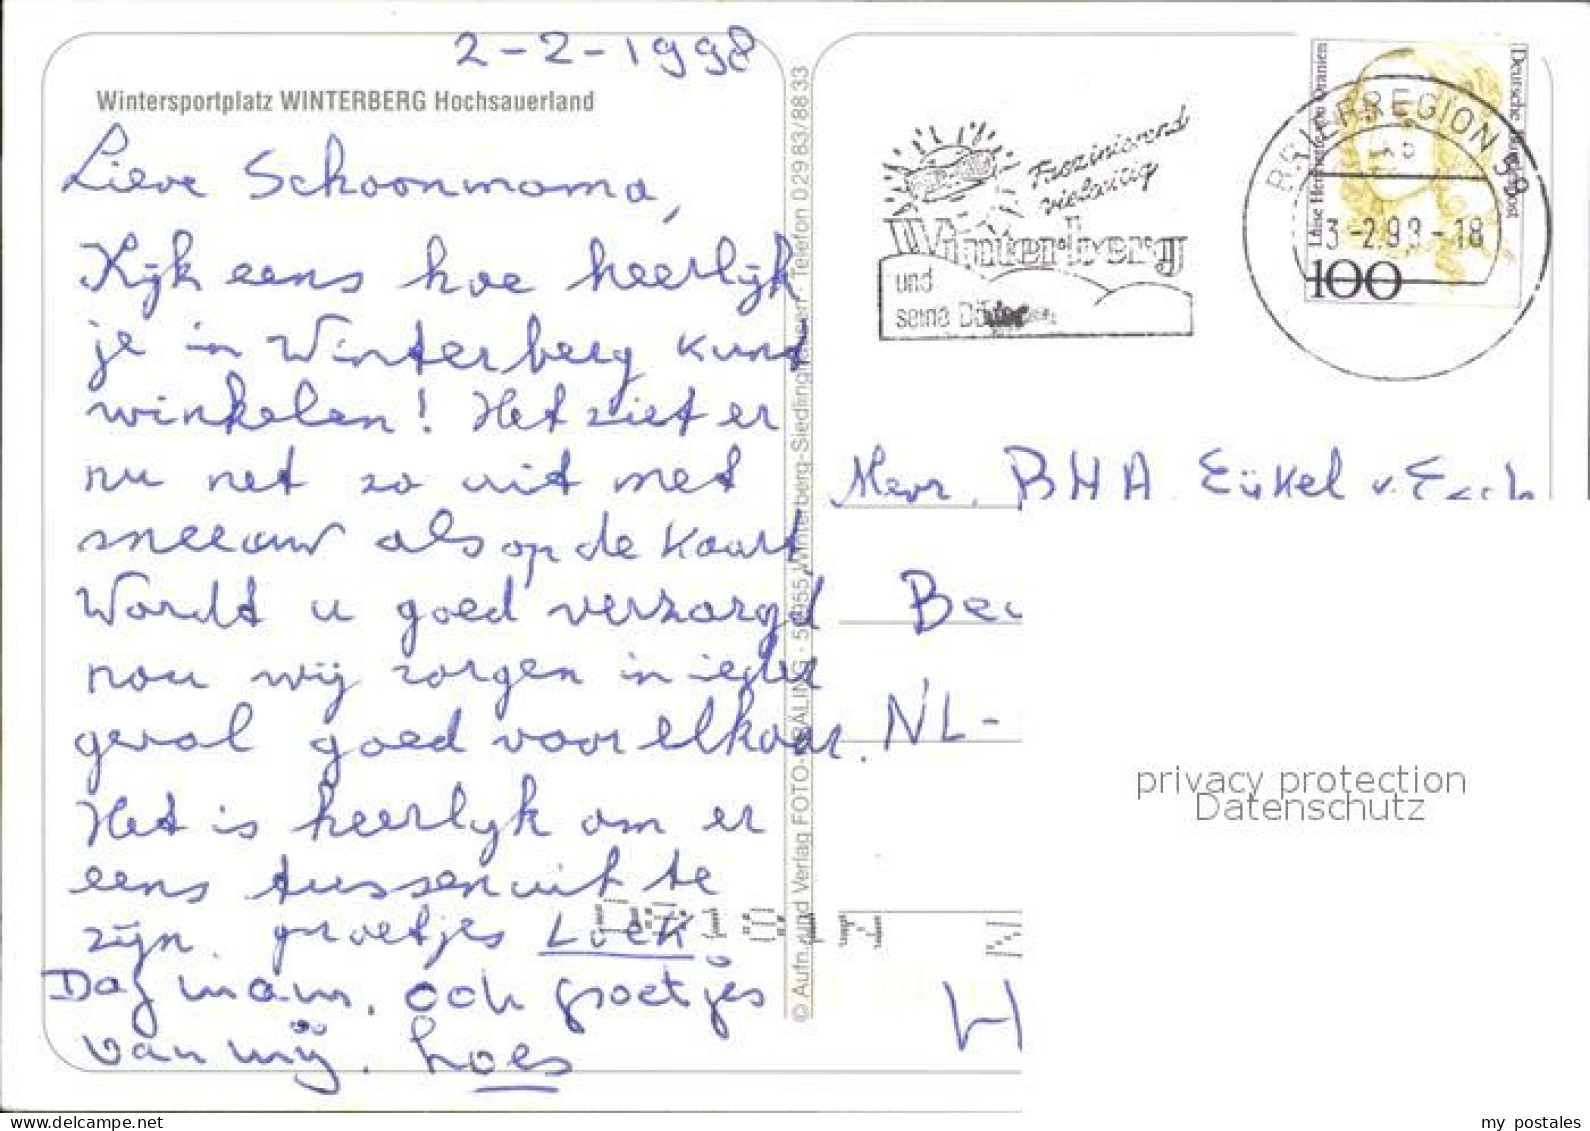 2-2-1998
Wintersportplatz WINTERBERG Hochsauerland
Lieve Schoonmama,
Kijk eens hoe heerlijk
je in Winterberg kunt
winkelen! Het ziet er
nu net zo uit met
sneeuw als op de kaart
Wordt u goed verzorgd
nou wij zorgen in ieder
geval goed voor elkaar.
Het is heerlijk om er
eens tussenuit te
zijn. groetjes Loek.
Dag mam, ook groetjes
van mij. Loes
© Aufn. und Verlag FOTO- 59955 Winterberg-Siedlinghausen · Telefon 0 29 83 / 88 33
Faszinierend
vielseitig
Winterberg
und
seine Dörfer
Deutsche Bundespost
Luise Henriette von Oranien
100
BRIEFREGION 59
3-2.98-18
Mevr. BHA
Bee
NL-
H
privacy protection
Datenschutz
delcampe.net
my_postales